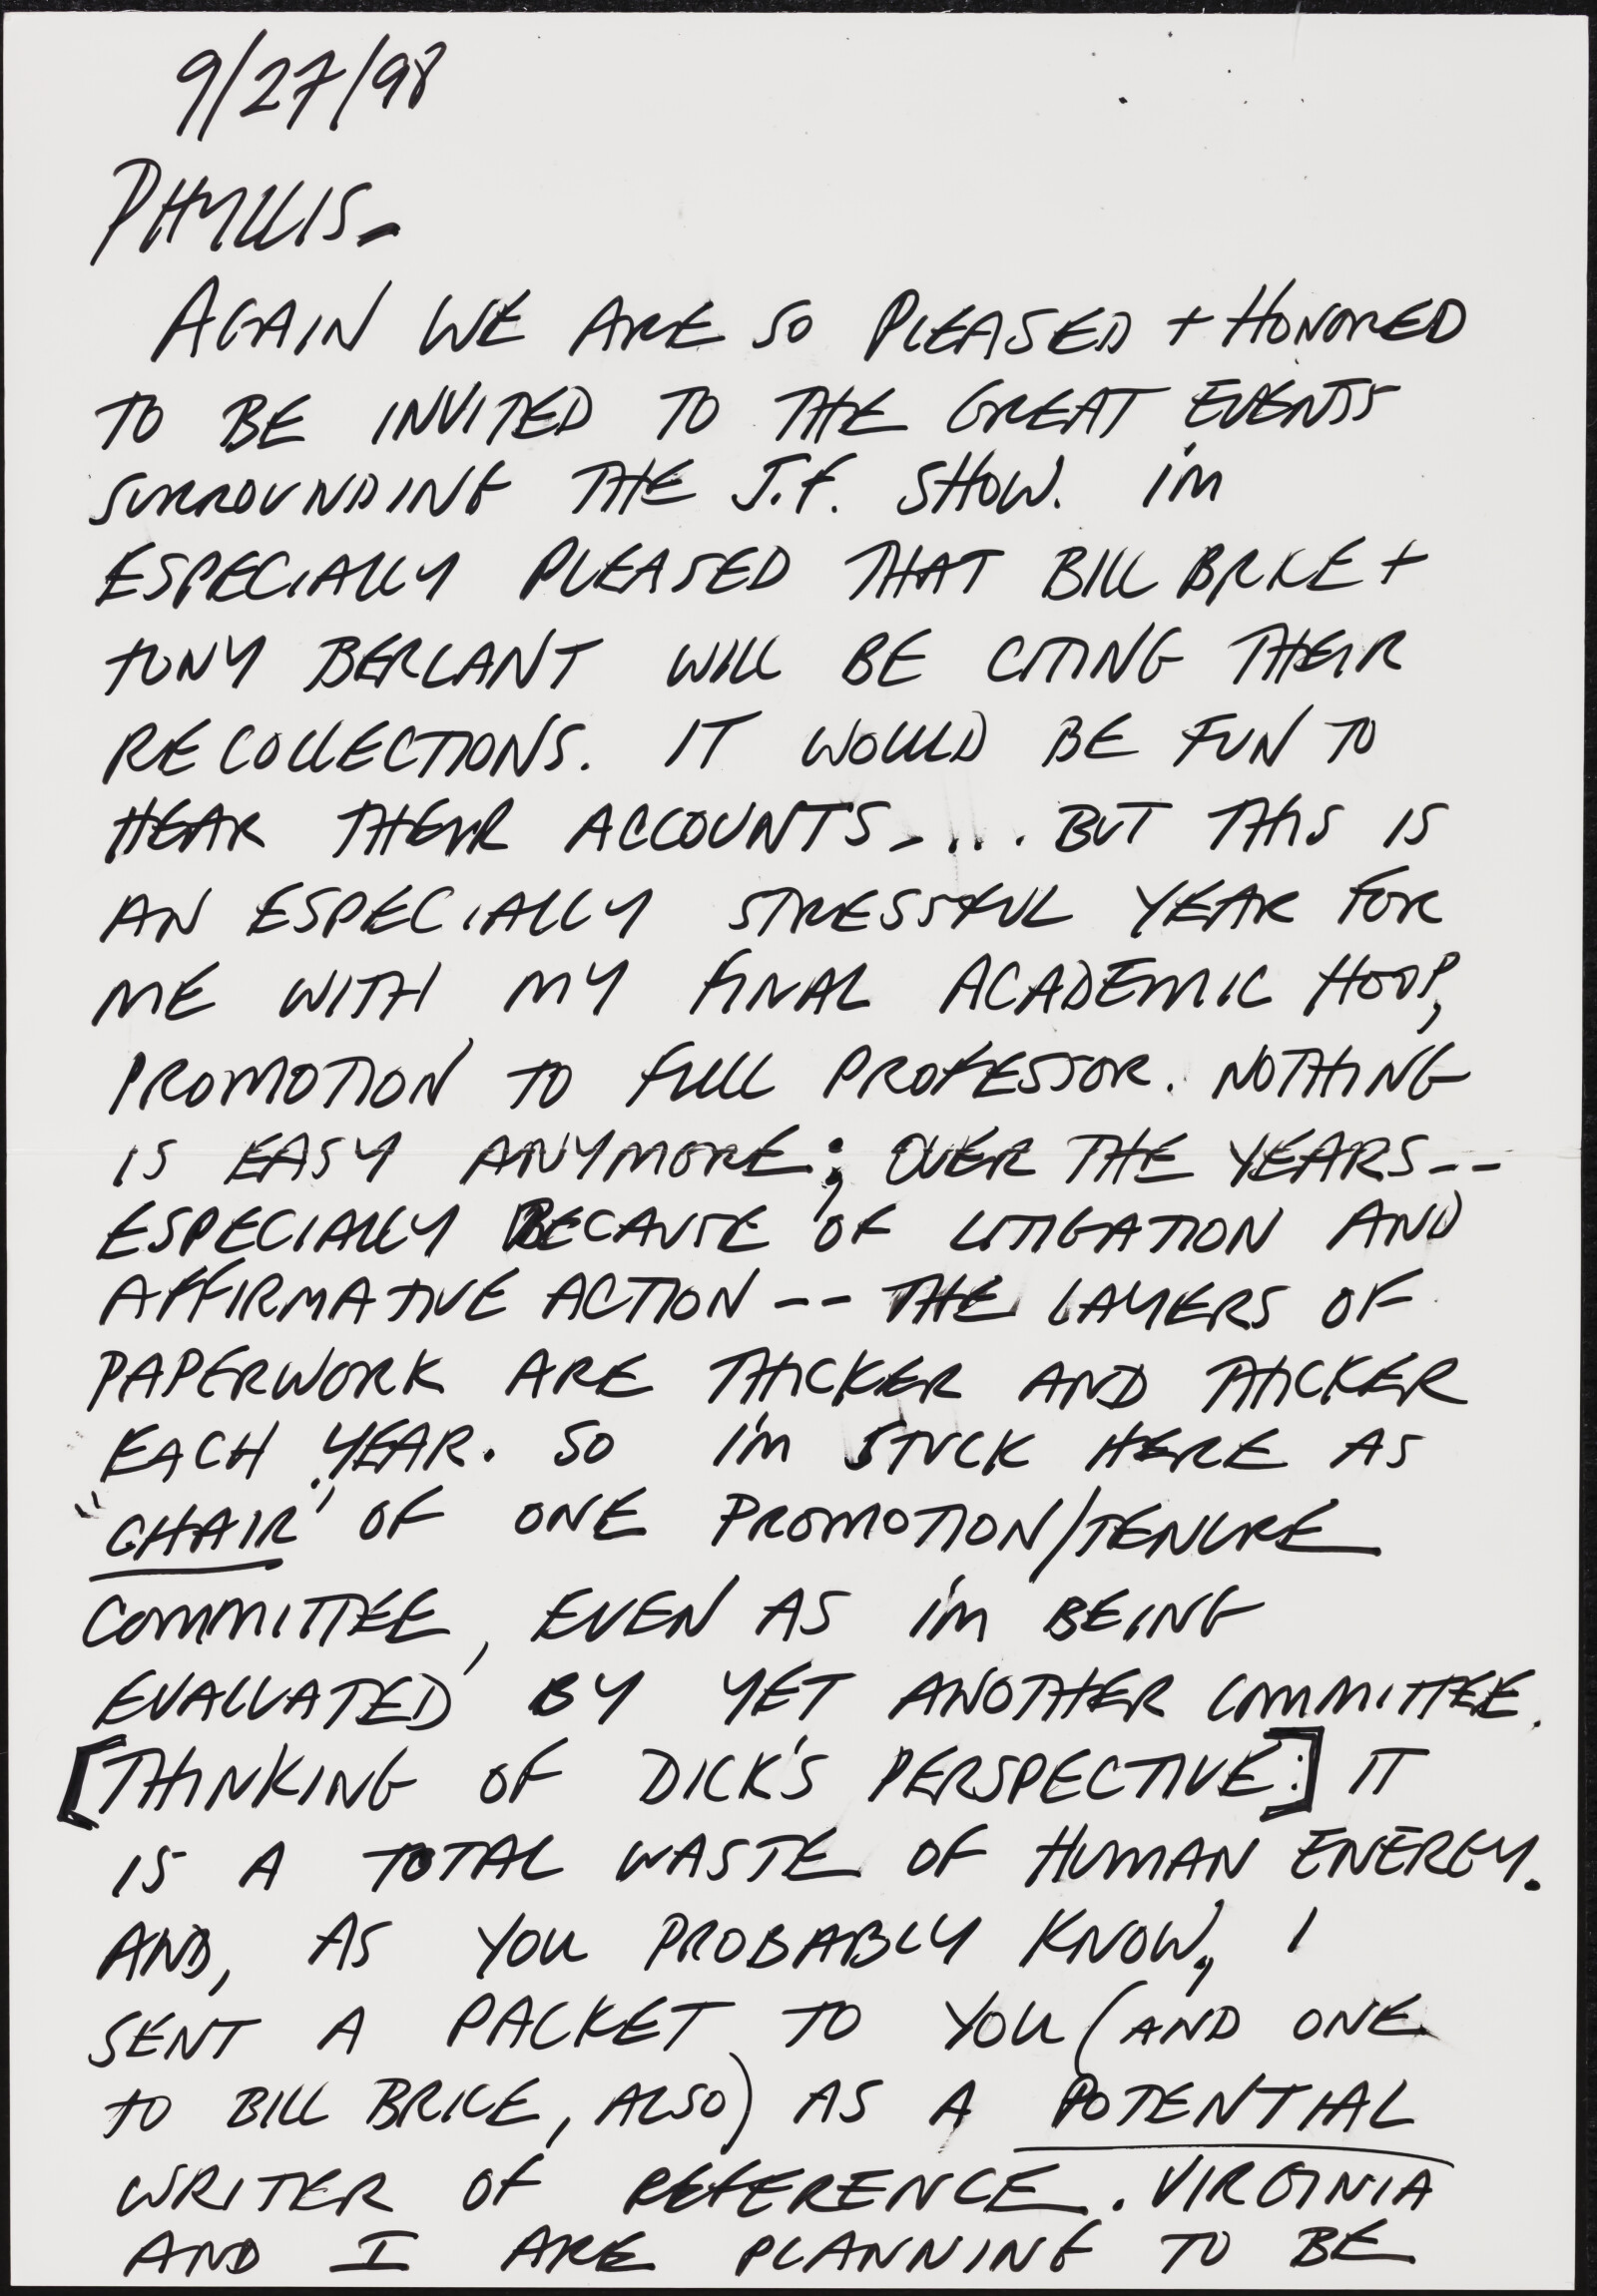 9/27/98
PHYLLIS-
AGAIN WE ARE SO PLEASED + HONORED
TO BE INVITED TO THE GREAT EVENTS
SURROUNDING THE J.F. SHOW. I'M
ESPECIALLY PLEASED THAT BILL BRICE +
TONY BERLANT WILL BE CITING THEIR
RECOLLECTIONS. IT WOULD BE FUN TO
HEAR THEIR ACCOUNTS-... BUT THIS IS
AN ESPECIALLY STRESSFUL YEAR FOR
ME WITH MY FINAL ACADEMIC HOOP,
PROMOTION TO FULL PROFESSOR. NOTHING
IS EASY ANYMORE; OVER THE YEARS--
ESPECIALLY BECAUSE OF LITIGATION AND
AFFIRMATIVE ACTION -- THE LAYERS OF
PAPERWORK ARE THICKER AND THICKER
EACH YEAR. SO I'M STUCK HERE AS
"CHAIR" OF ONE PROMOTION/TENURE
COMMITTEE, EVEN AS I'M BEING
EVALUATED BY YET ANOTHER COMMITTEE.
[THINKING OF DICK'S PERSPECTIVE:] IT
IS A TOTAL WASTE OF HUMAN ENERGY.
AND, AS YOU PROBABLY KNOW, I
SENT A PACKET TO YOU (AND ONE
TO BILL BRICE, ALSO) AS A POTENTIAL
WRITER OF REFERENCE. VIRGINIA
AND I ARE PLANNING TO BE